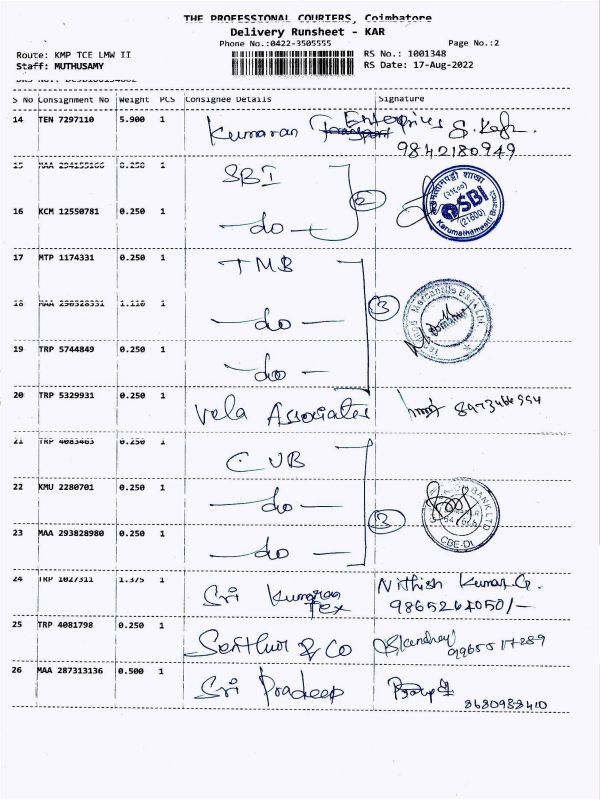 THE PROFESSIONAL COURIERS, Coimbatore
Delivery Runsheet - KAR
Phone No.:0422-3505555 Page No.:2
Route: KMP TCE LMW II RS No.: 1001348
Staff: MUTHUSAMY RS Date: 17-Aug-2022
S No Consignment No Weight PCS Consignee Details Signature
14 TEN 7297110 5.900 1 Kumaran Transport Enterprises
9842180949
15 1 SBI
2
SBI
(21600)
Karumathampatti Branch
16 KCM 12550781 0.250 1 -do-
17 MTP 1174331 0.250 1 TMB
18 1 -do- 3
Mercantile Bank Ltd.
19 TRP 5744849 0.250 1 -do-
20 TRP 5329931 0.250 1 Vela Associates
21 TRP 4083463 0.250 1 CUB
22 KMU 2280701 0.250 1 -do-
3
BANK LTD
CBE-DL
23 MAA 293828980 0.250 1 -do-
24 TRP 1027311 1.375 1 Sri Kumaran Tex Nithish Kumar.G.
9865264050/-
25 TRP 4081798 0.250 1 Senthur & Co
26 MAA 287313136 0.500 1 Sri Pradeep
8680988410